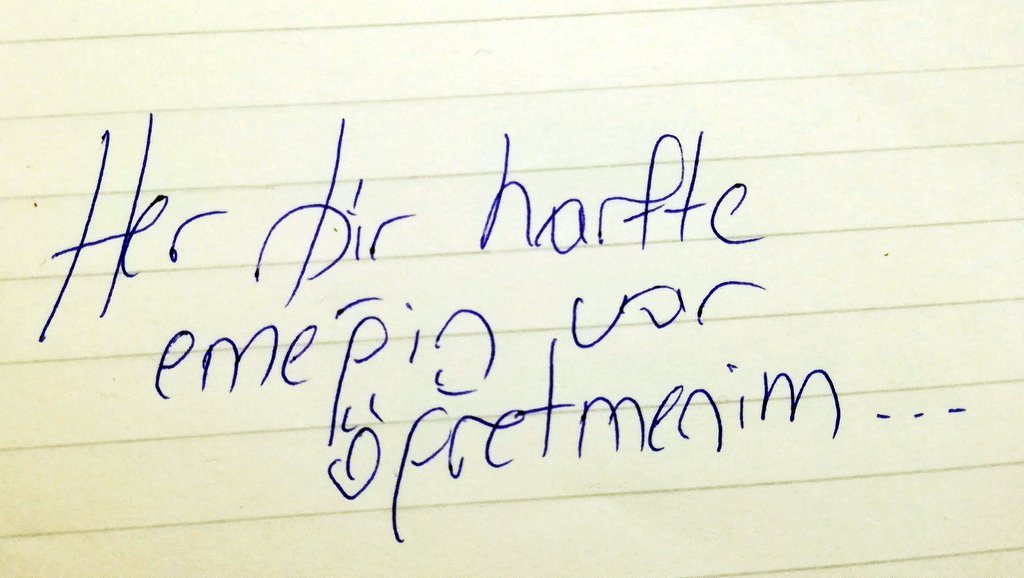 Her bir harfte
emeğin var
öğretmenim ....